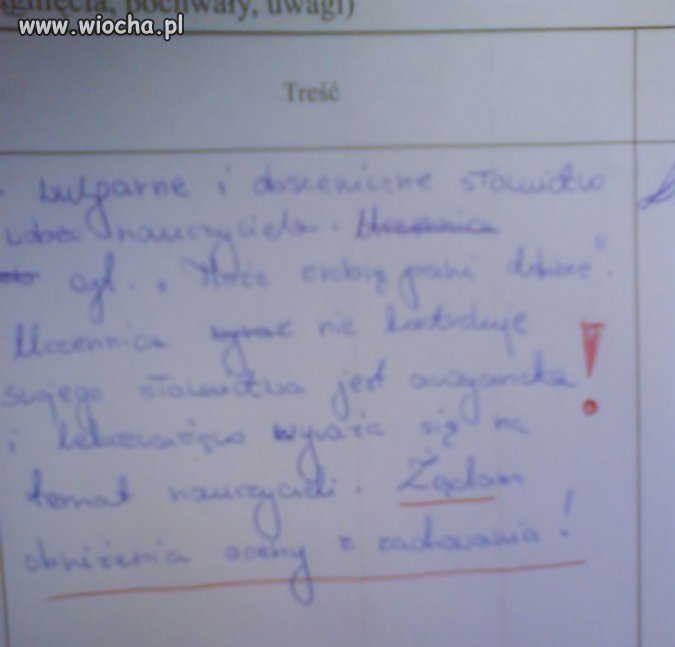 aginięcia, pochwały, uwagi)
www.wiocha.pl
Treść
- wulgarne i dosceniczne słownictwo
wobec nauczyciela. Uczennica
cyt. "Może zrobię pani dobrze".
Uczennica nie kontroluje
swojego słownictwa jest arogancka
i lekceważąco wyraża się na
temat nauczycieli. Żądam
obniżenia oceny z zachowania!
!